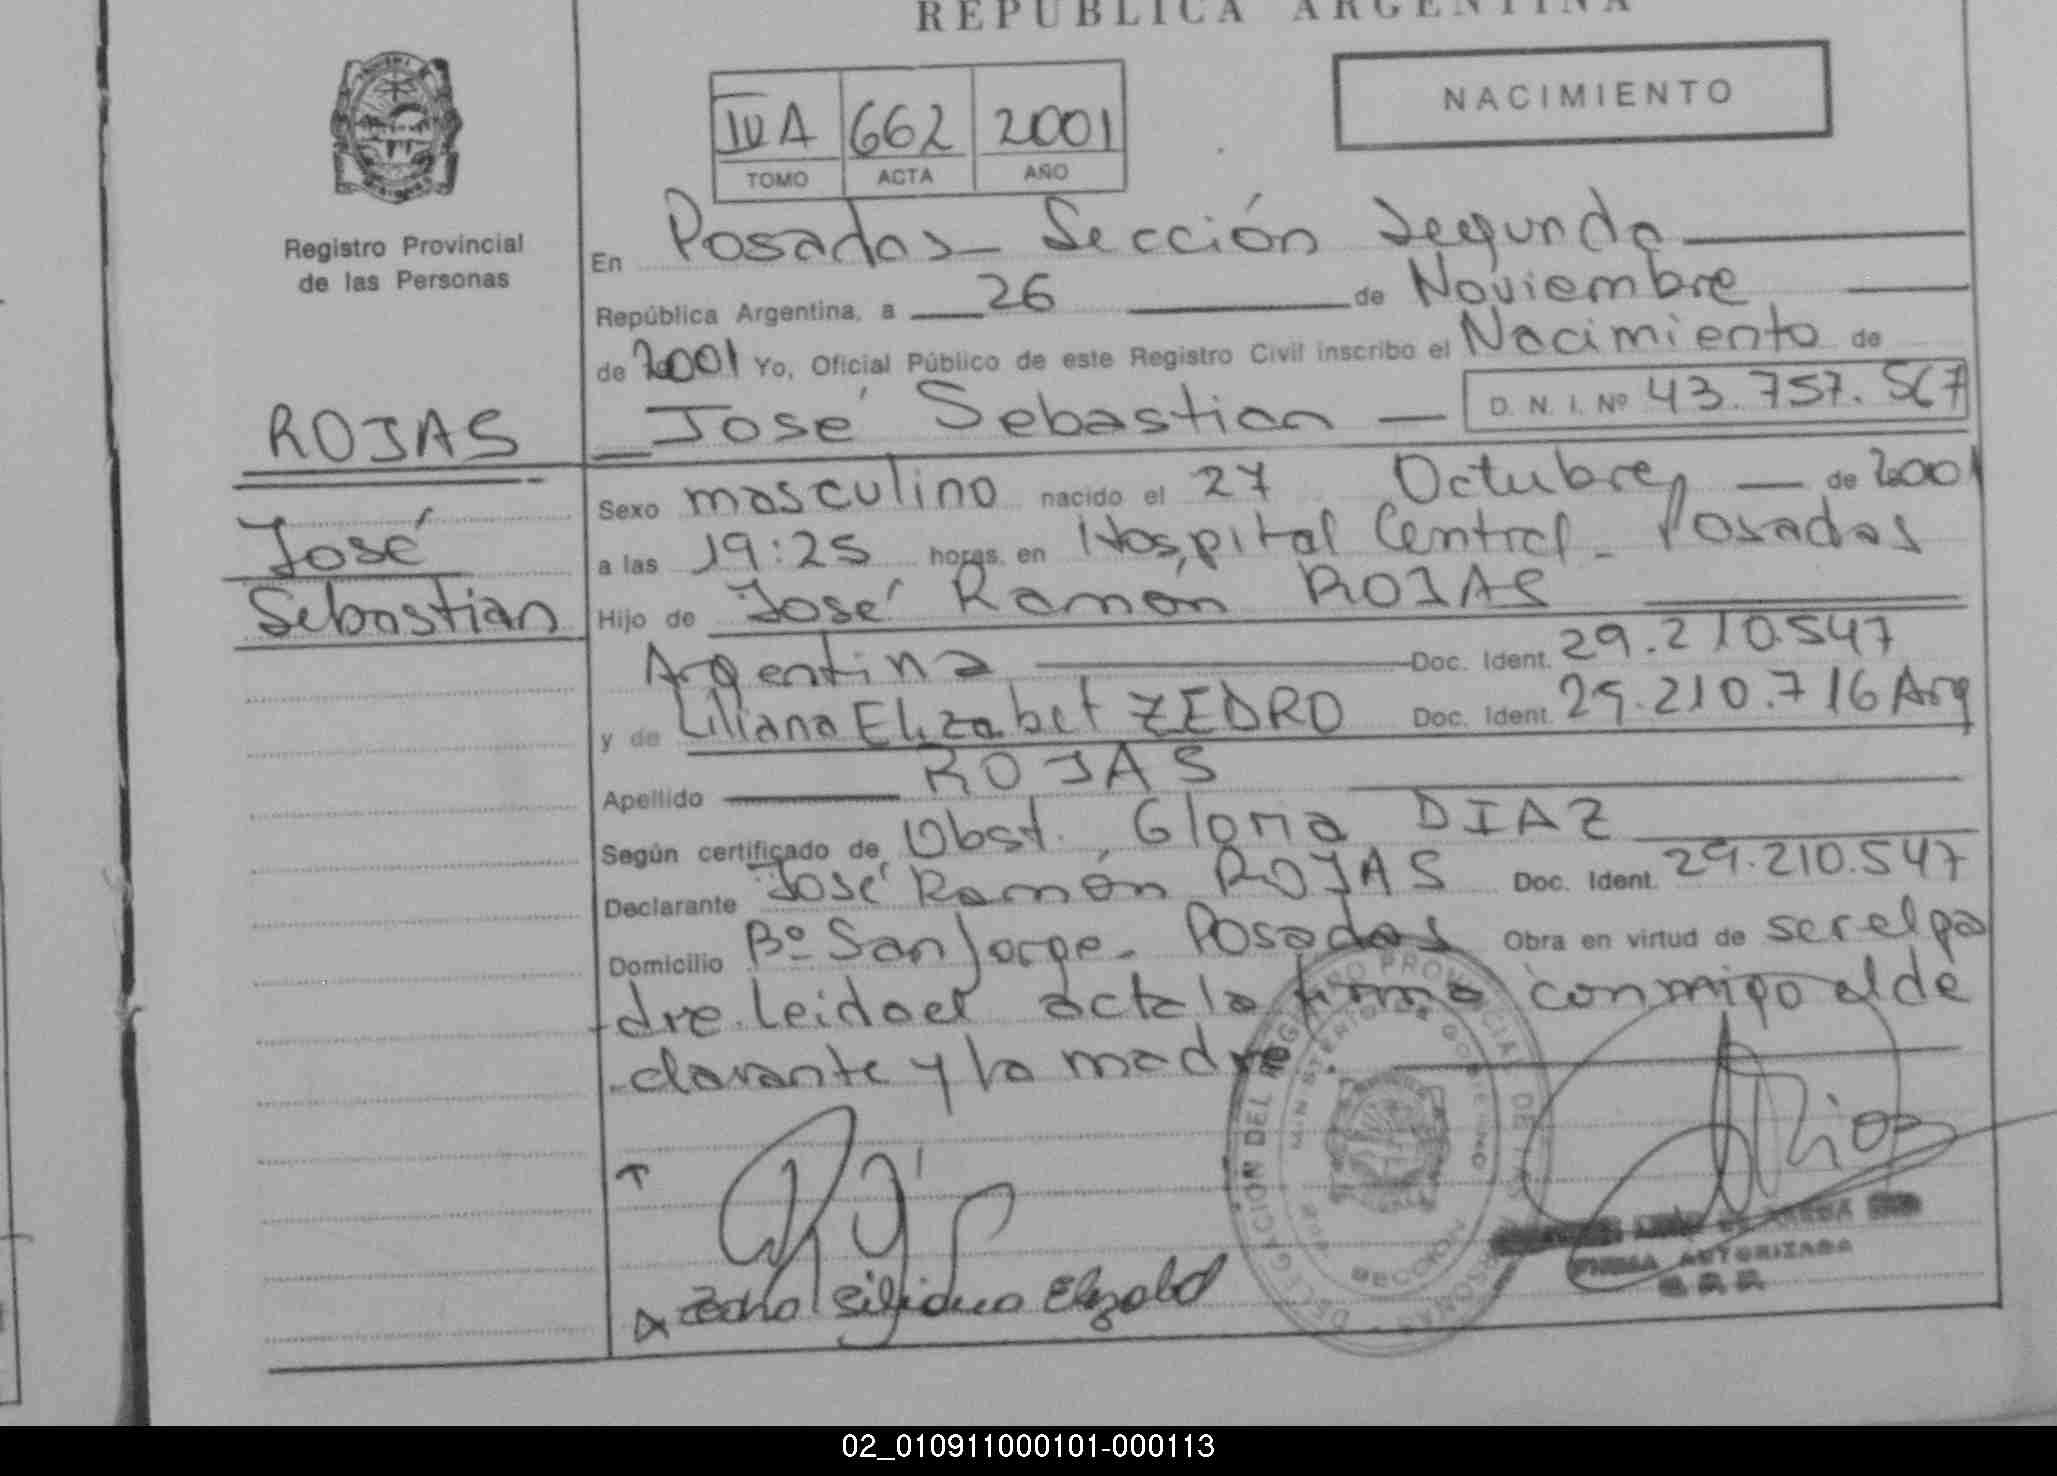 REPUBLICA ARGENTINA
NACIMIENTO
IV A 662 2001
TOMO ACTA AÑO
Registro Provincial
de las Personas
ROJAS
José
Sebastian
En Posadas - Sección Segunda
República Argentina, a 26 de Noviembre
de 2001 Yo, Oficial Público de este Registro Civil inscribo el Nacimiento de
José Sebastian D. N. I. Nº 43.757.567
Sexo masculino nacido el 27 Octubre de 2001
a las 19:25 horas, en Hospital Central - Posadas
Hijo de José Ramón ROJAS
Argentina Doc. Ident. 29.210.547
y de Liliana Elizabet ZEDRO Doc. Ident. 29.210.716 Arg
Apellido ROJAS
Según certificado de Obst. Gloria DIAZ
Declarante José Ramón ROJAS Doc. Ident. 29.210.547
Domicilio Bº San Jorge - Posadas Obra en virtud de ser el pa
dre. Leida el acta la firma conmigo el de
clarante y la madre
DELEGACION DEL REGISTRO PROVINCIAL DE LAS PERSONAS
MINISTERIO DE GOBIERNO
SECCION
Rios
Elizabet
FIRMA AUTORIZADA
02_010911000101-000113